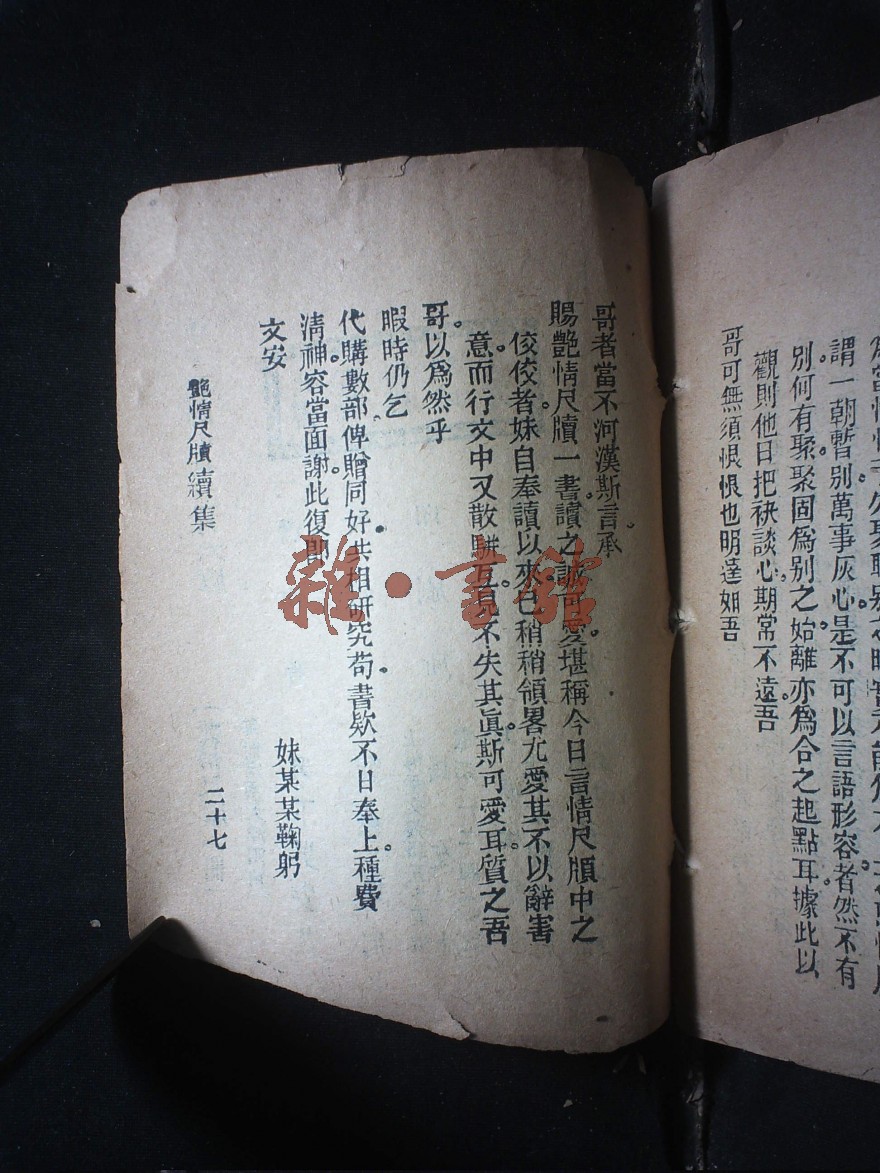 謂一朝暫别萬事灰心。是不可以言語形容者然不有
别。何有聚。聚固爲别之始。離亦爲合之起點耳。據此以
觀則他日把袂談心。期常不遠。吾
哥可無須恨恨也明達如吾
哥者當不河漢斯言。承
賜艷情尺牘一書。讀之誠可愛。堪稱今日言情尺牘中之
佼佼者。妹自奉讀以來。已稍稍領畧尤愛其不以辭害
意。而行文中又散駢互見。不失其眞。斯可愛耳。質之吾
哥。以爲然乎
暇時仍乞
代購數部俾贈同好。共相研究。苟書欵不日奉上。種費
清神。容當面謝。此復卽
文安
妹某某鞠躬
艷情尺牘續集
二十七
雜·書館